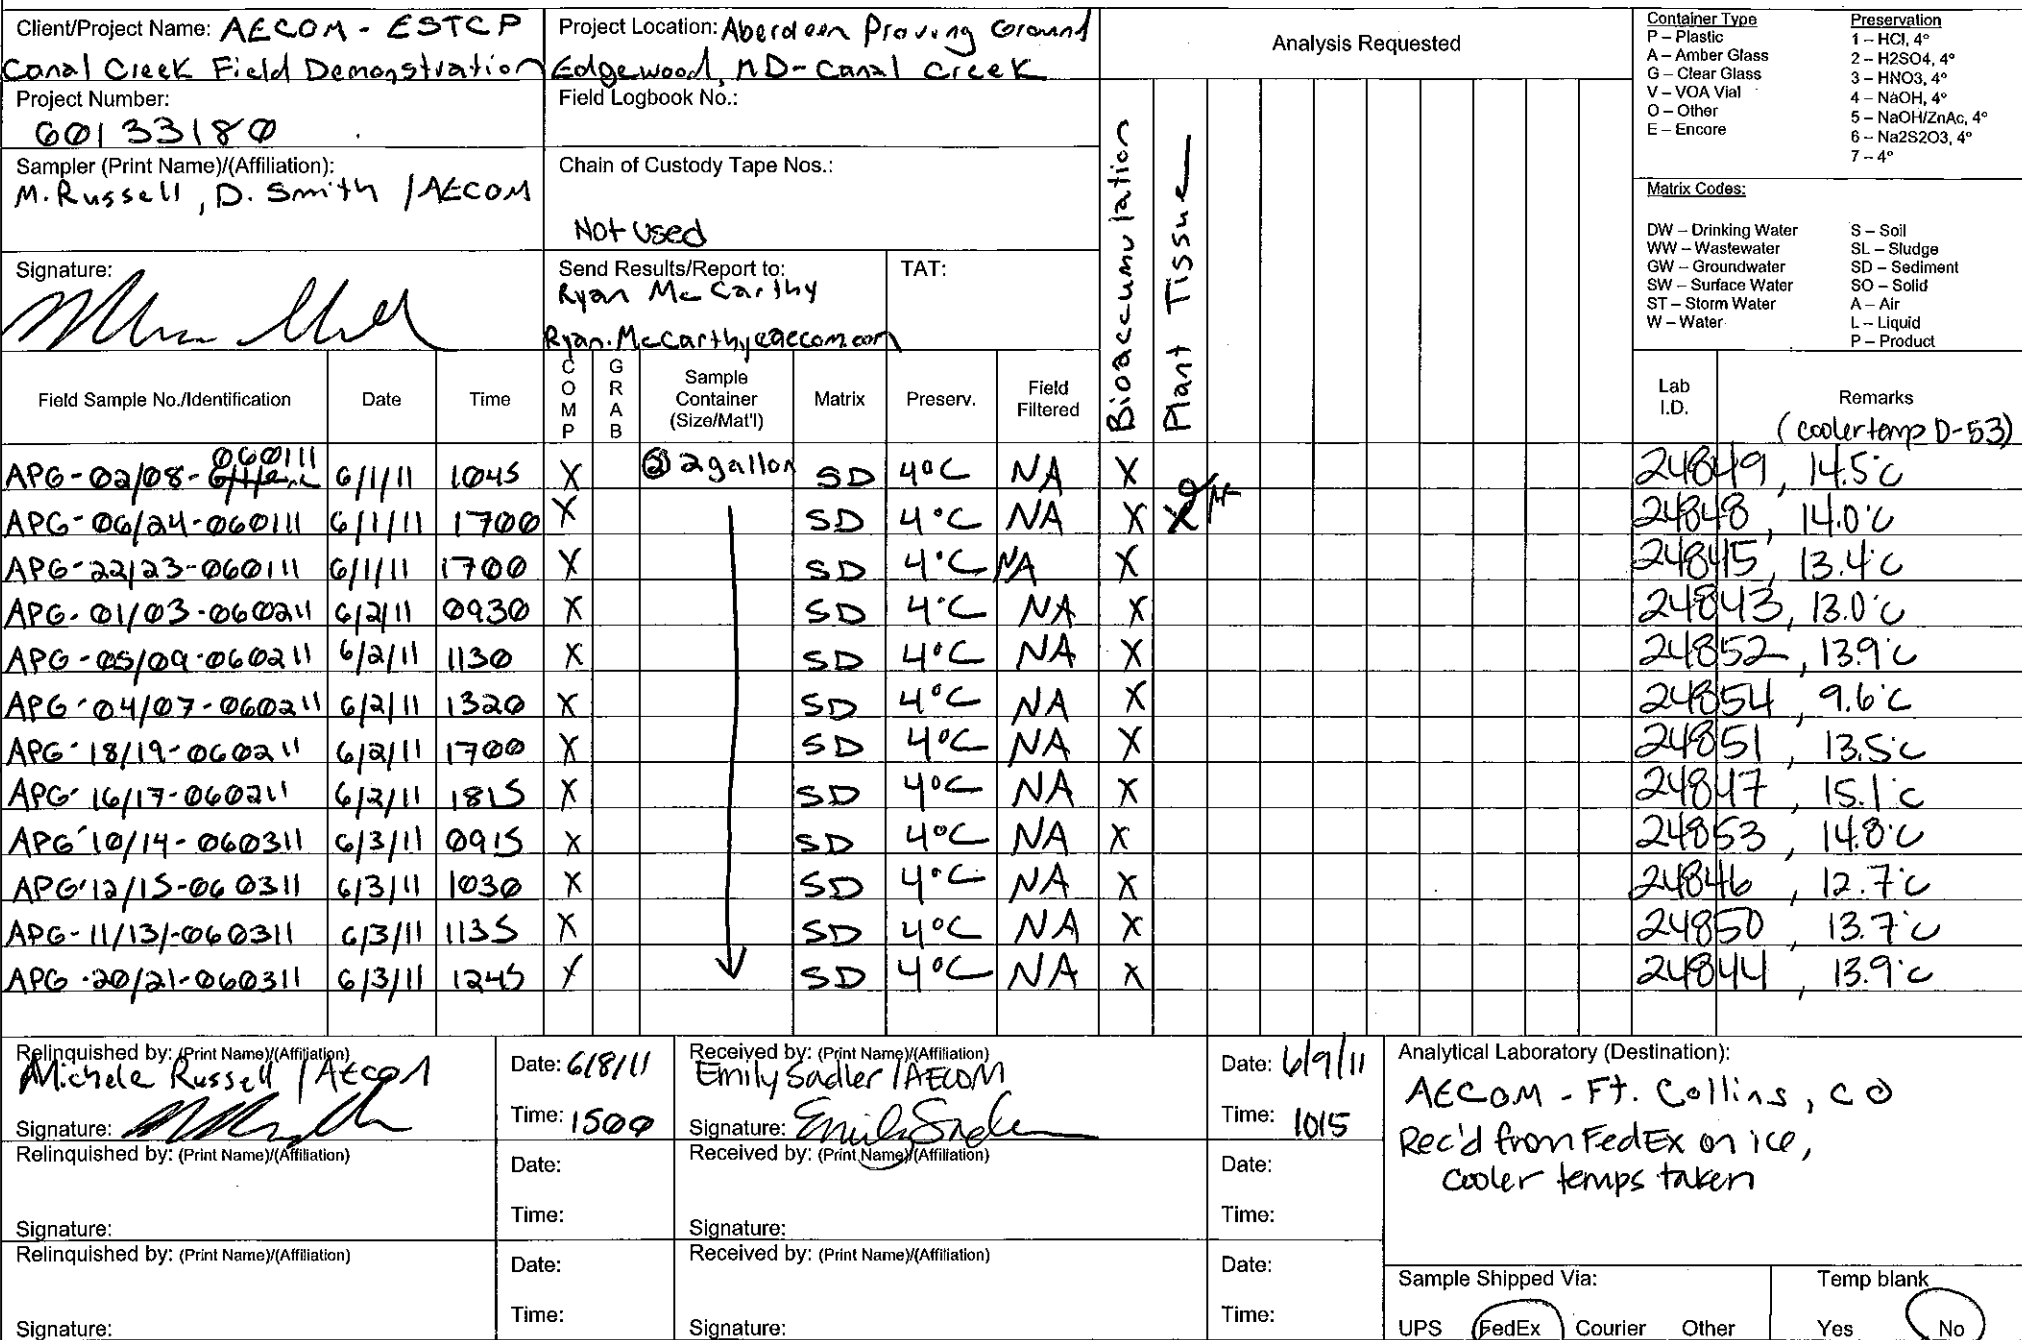 Client/Project Name: AECOM - ESTCP
Canal Creek Field Demonstration
Project Location: Aberdeen Proving Ground
Edgewood, MD - Canal Creek
Analysis Requested
Container Type
P – Plastic
A – Amber Glass
G – Clear Glass
V – VOA Vial
O – Other
E – Encore
Preservation
1 – HCl, 4°
2 – H2SO4, 4°
3 – HNO3, 4°
4 – NaOH, 4°
5 – NaOH/ZnAc, 4°
6 – Na2S2O3, 4°
7 – 4°
Project Number:
60133180
Field Logbook No.:
Sampler (Print Name)/(Affiliation):
M. Russell, D. Smith / AECOM
Chain of Custody Tape Nos.:
Not used
Matrix Codes:
DW – Drinking Water
WW – Wastewater
GW – Groundwater
SW – Surface Water
ST – Storm Water
W – Water
S – Soil
SL – Sludge
SD – Sediment
SO – Solid
A – Air
L – Liquid
P – Product
Signature:
Send Results/Report to:
Ryan McCarthy
Ryan.McCarthy@aecom.com
TAT:
Bioaccumulation
Plant Tissue
Field Sample No./Identification Date Time COMP GRAB Sample Container (Size/Mat'l) Matrix Preserv. Field Filtered Lab I.D. Remarks
(cooler temp D-53)
060111
APG-02/08- 6/1/11 1045 X 2 gallon SD 4°C NA X 24849, 14.5°C
APG-06/24-060111 6/1/11 1700 X SD 4°C NA X X 24848, 14.0°C
APG-22/23-060111 6/1/11 1700 X SD 4°C NA X 24845, 13.4°C
APG-01/03-060211 6/2/11 0930 X SD 4°C NA X 24843, 13.0°C
APG-05/09-060211 6/2/11 1130 X SD 4°C NA X 24852, 13.9°C
APG-04/07-060211 6/2/11 1320 X SD 4°C NA X 24854, 9.6°C
APG-18/19-060211 6/2/11 1700 X SD 4°C NA X 24851, 13.5°C
APG-16/17-060211 6/2/11 1815 X SD 4°C NA X 24847, 15.1°C
APG-10/14-060311 6/3/11 0915 X SD 4°C NA X 24853, 14.8°C
APG-12/15-060311 6/3/11 1030 X SD 4°C NA X 24846, 12.7°C
APG-11/13/-060311 6/3/11 1135 X SD 4°C NA X 24850, 13.7°C
APG-20/21-060311 6/3/11 1245 X SD 4°C NA X 24844, 13.9°C
Relinquished by: (Print Name)/(Affiliation)
Michele Russell / Aecom
Signature:
Date: 6/8/11
Time: 1500
Received by: (Print Name)/(Affiliation)
Emily Sadler / AECOM
Signature: Emily Sadler
Date: 6/9/11
Time: 1015
Analytical Laboratory (Destination):
AECOM - Ft. Collins, CO
Rec'd from FedEx on ice,
cooler temps taken
Relinquished by: (Print Name)/(Affiliation)
Signature:
Date:
Time:
Received by: (Print Name)/(Affiliation)
Signature:
Date:
Time:
Relinquished by: (Print Name)/(Affiliation)
Signature:
Date:
Time:
Received by: (Print Name)/(Affiliation)
Signature:
Date:
Time:
Sample Shipped Via:
UPS FedEx Courier Other
Temp blank
Yes No